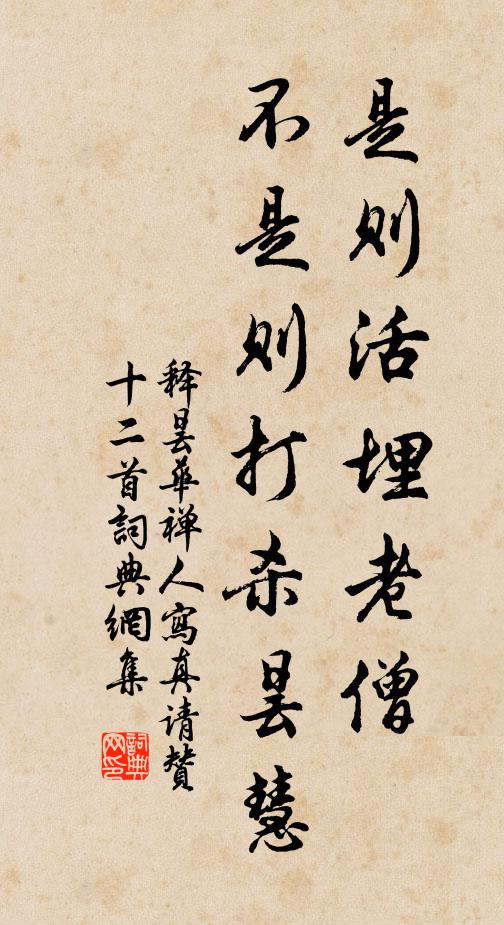 是则活埋老僧
不是则打杀昙慧
释昙华禅人寫真请赞
十二首詞典網集
詞典
网印